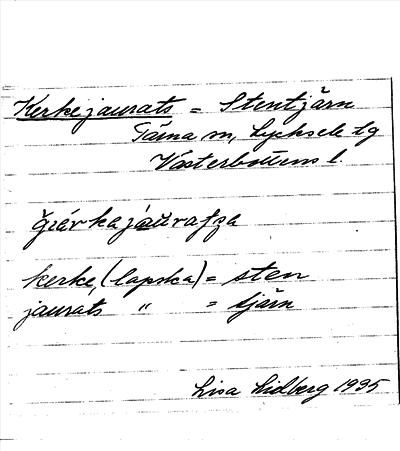 Kerkejaurats = Stentjärn
Tärna sn, Lycksele lg
Västerbottens l.
kerke (lapska) = sten
jaurats " = tjärn
Lisa Lidberg 1935